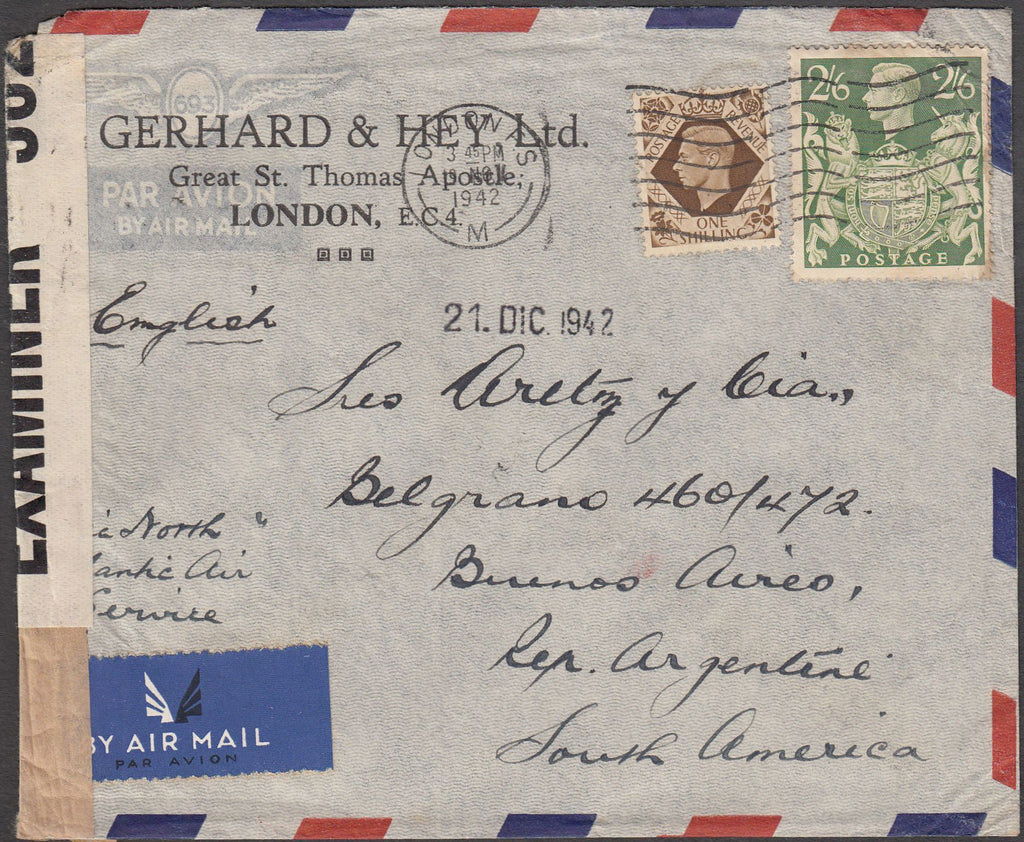 693
GERHARD & HEY Ltd.
Great St. Thomas Apostle,
LONDON, E.C.4.
PAR AVION
BY AIR MAIL
LONDON
3 45 PM
1942
M
POSTAGE REVENUE
ONE
SHILLING
2/6 2/6
POSTAGE
EXAMINER
English
21. DIC. 1942
Sres Aretz y Cia.,
Belgrano 460/472.
Buenos Aires,
Rep. Argentine
South America
North "
lantic Air
Service
BY AIR MAIL
PAR AVION